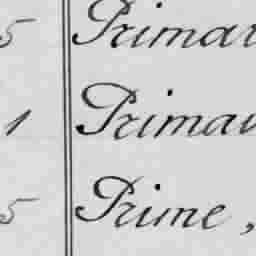 5 Primar
1 Primar
5 Prime,